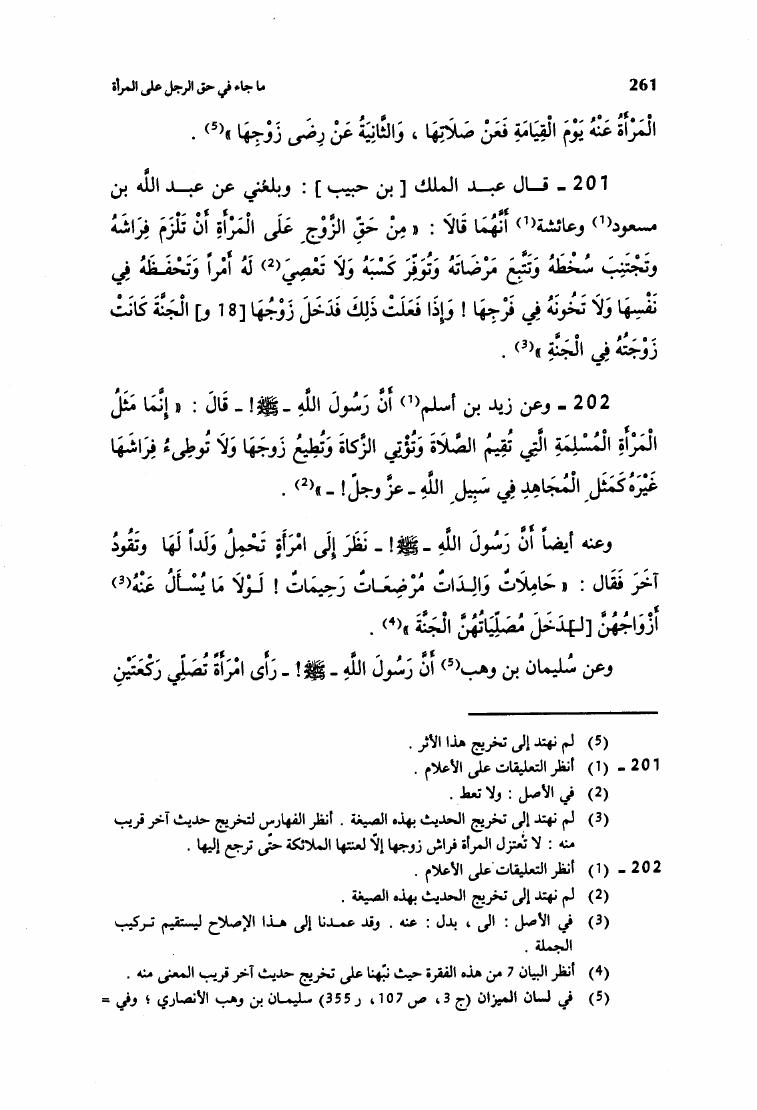 261 ما جاء في حق الرجل على المرأة
المَرْأَةُ عَنْهُ يَوْمَ الْقِيَامَةِ فَعَنْ صَلَاتِهَا ، وَالثَّانِيَةُ عَنْ رِضَى زَوْجِهَا »(5) .
201 ـ قـال عبـد الملك [ بن حبيب ] : وبلغني عن عبـد اللَّه بن
مسعود(1) وعائشة(1) أَنَّهُمَا قَالَا : « مِنْ حَقِّ الزَّوْجِ عَلَى المَرْأَةِ أَنْ تَلْزَمَ فِرَاشَهُ
وتَجْتَنِبَ سُخْطَهُ وَتَتَّبِعَ مَرْضَاتَهُ وَتُوَفِّرَ كَسْبَهُ وَلَا تَعْصِيَ(2) لَهُ أَمْراً وَتَحْفَظَهُ فِي
نَفْسِهَا وَلَا تَخُونَهُ فِي فَرْجِهَا ! وَإِذَا فَعَلَتْ ذَلِكَ فَدَخَلَ زَوْجُهَا [18 و] الْجَنَّةَ كَانَتْ
زَوْجَتَهُ فِي الْجَنَّةِ »(3) .
202 ـ وعن زيد بن أسلم(1) أَنَّ رَسُولَ اللَّهِ ـ ﷺ! ـ قَالَ : « إِنَّمَا مَثَلُ
المَرْأَةِ الْمُسْلِمَةِ الَّتِي تُقِيمُ الصَّلَاةَ وَتُؤْتِي الزَّكاةَ وَتُطِيعُ زَوجَهَا وَلَا تُوطِيءُ فِرَاشَهَا
غَيْرَهُ كَمَثَلِ الْمُجَاهِدِ فِي سَبِيلِ اللَّهِ ـ عزّ وجلّ! ـ »(2) .
وعنه أيضاً أَنَّ رَسُولَ اللَّهِ ـ ﷺ! ـ نَظَرَ إِلَى امْرَأَةٍ تَحْمِلُ وَلَداً لَهَا وَتَقُودُ
آخَرَ فَقَال : « حَامِلَاتٌ وَالِدَاتٌ مُرْضِعَاتٌ رَحِيمَاتٌ ! لَـوْلَا مَا يُسْأَلُ عَنْهُ(3)
أَزْوَاجُهُنَّ [لَـ]ـدَخَلَ مُصَلِّيَاتُهُنَّ الْجَنَةَ »(4) .
وعن سُليمان بن وهب(5) أَنَّ رَسُولَ اللَّهِ ـ ﷺ! ـ رَأَى امْرَأَةً تُصَلِّي رَكْعَتَيْنِ
(5) لم نهتد إلى تخريج هذا الأثر .
201 ـ (1) أنظر التعليقات على الأعلام .
(2) في الأصل : ولا تعط .
(3) لم نهتد إلى تخريج الحديث بهذه الصيغة . أنظر الفهارس لتخريج حديث آخر قريب
منه : لا تعتزل امرأة فراش زوجها إلّا لعنتها الملائكة حتّى ترجع إليها .
202 ـ (1) أنظر التعليقات على الأعلام .
(2) لم نهتد إلى تخريج الحديث بهذه الصيغة .
(3) في الأصل : الى ، بدل : عنه . وقد عمـدنا إلى هـذا الإصلاح ليستقيم تـركيب
الجملة .
(4) أنظر البيان 7 من هذه الفقرة حيث نبّهنا على تخريج حديث آخر قريب المعنى منه .
(5) في لسان الميزان (ج 3، ص 107، ر 355) سليمان بن وهب الأنصاري ؛ وفي =